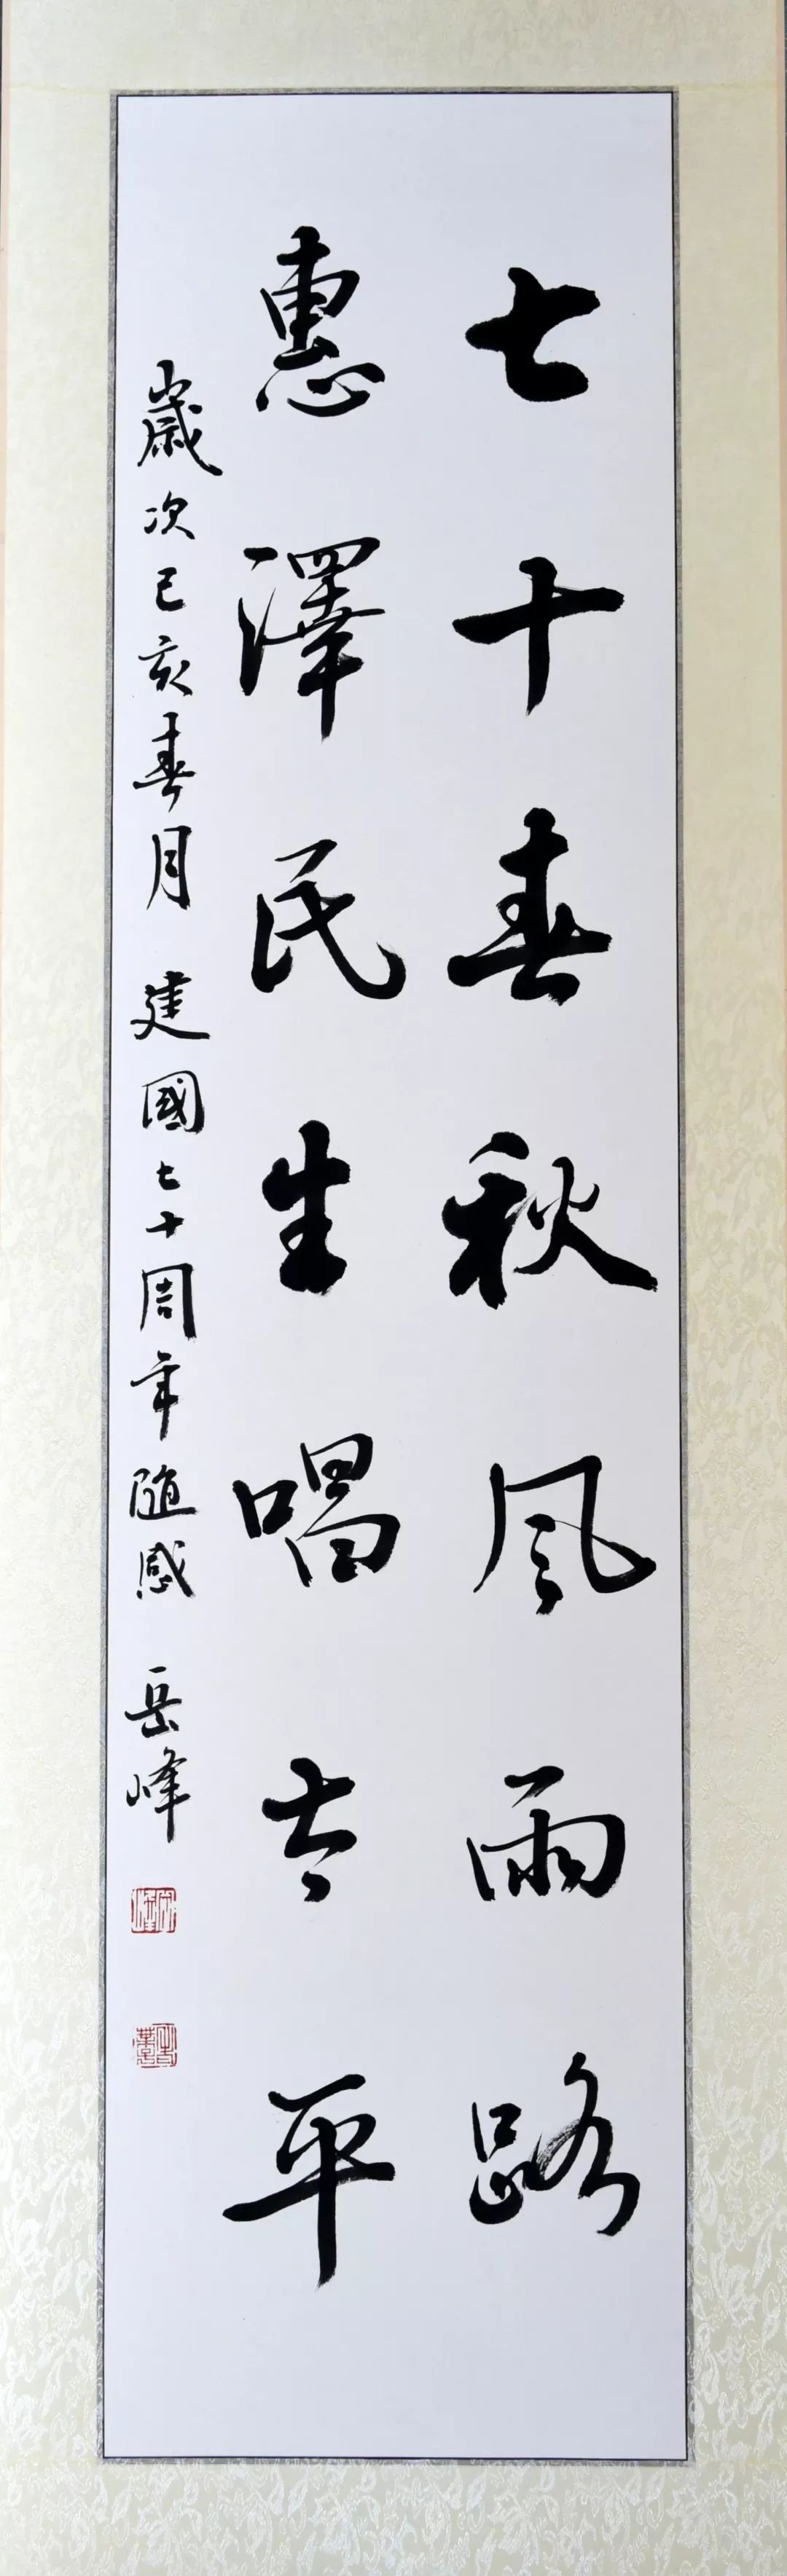 七十春秋風雨路
惠澤民生唱太平
歲次己亥春月 建國七十周年隨感 岳峰